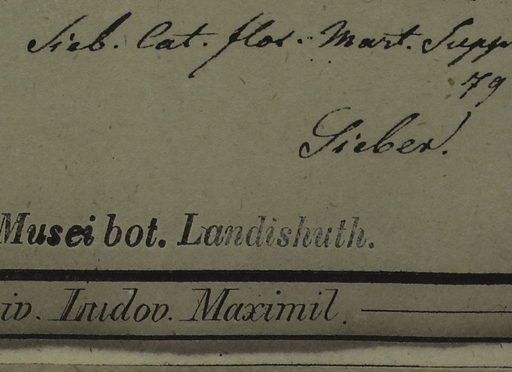 Sieb. Cat. flor. Mart. Supp
79
Sieber.
Musei bot. Landishuth.
iv. Ludov. Maximil.